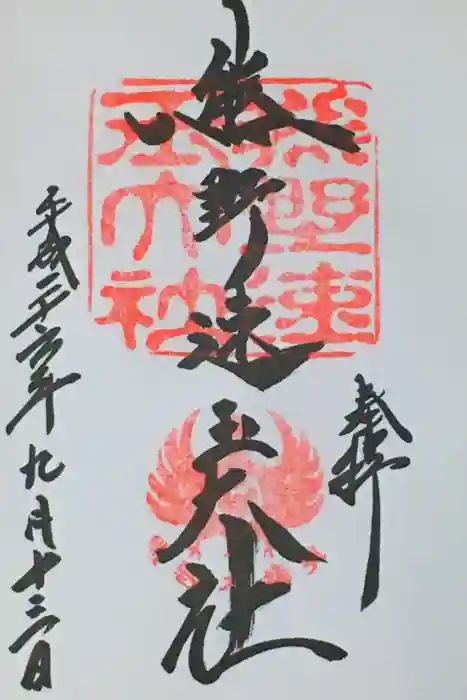 奉拝
熊野速玉大社
熊野速
玉大社
平成二十六年九月十三日